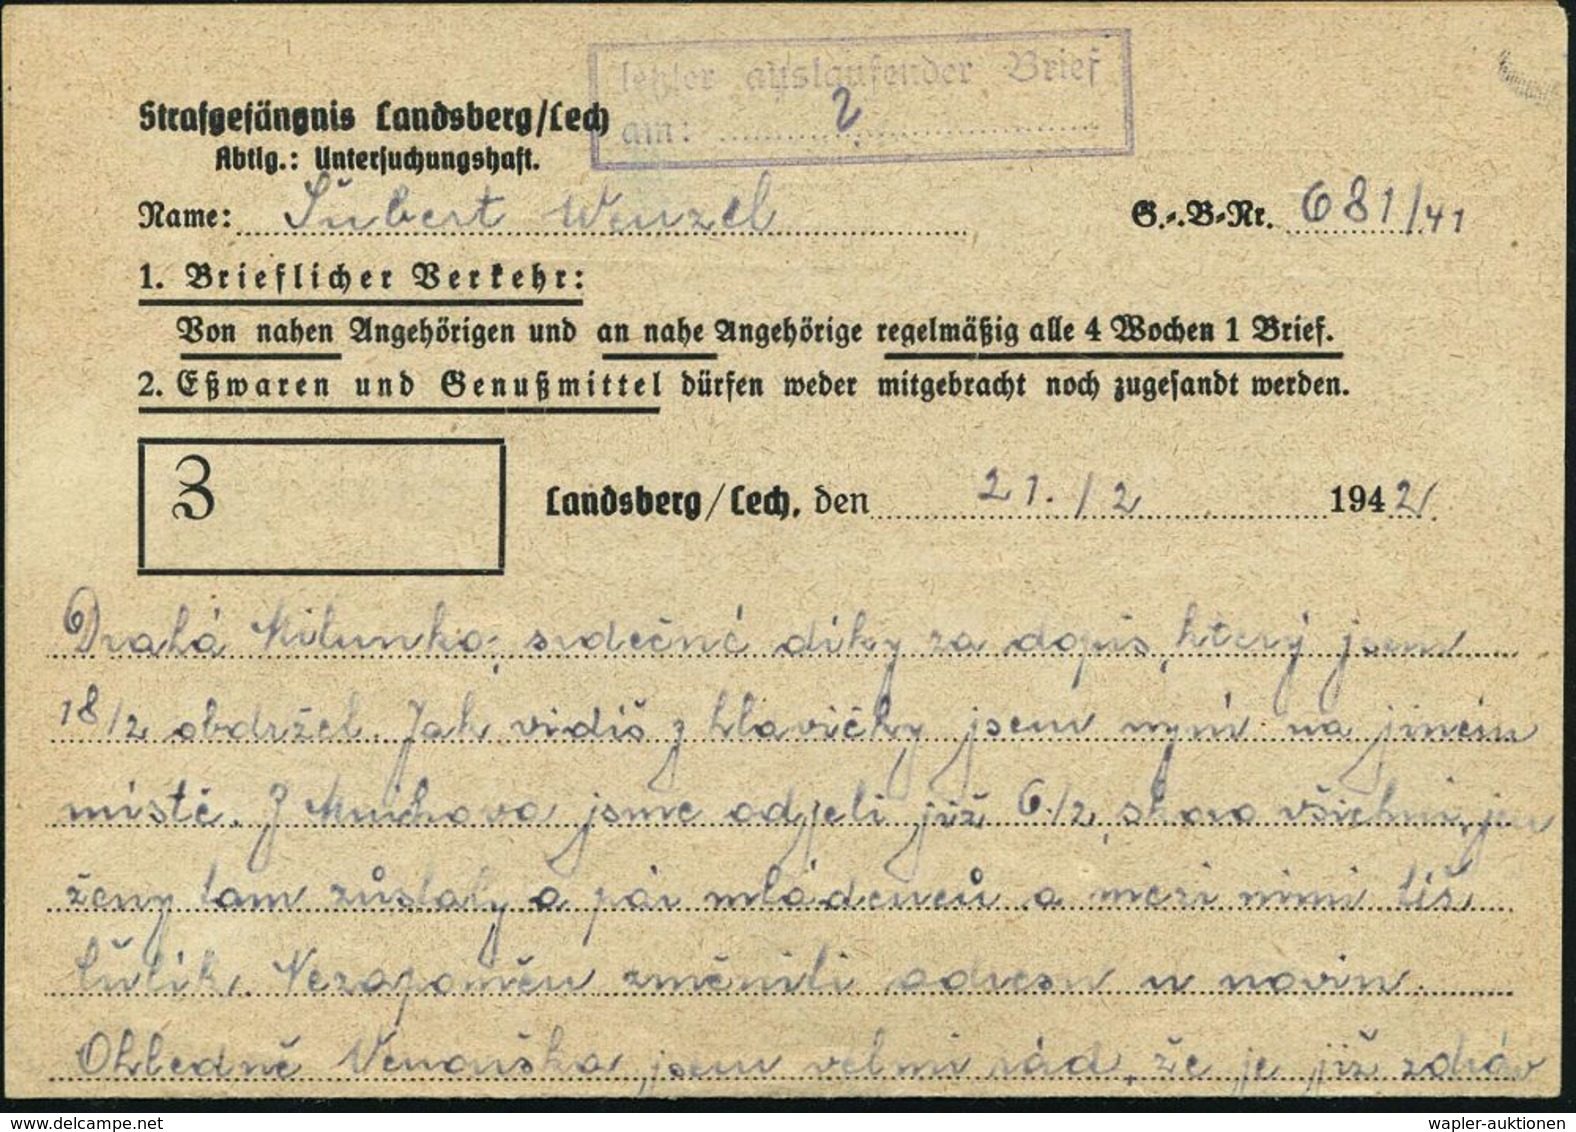 letzter auslaufender Brief
am: 2
Strafgefängnis Landsberg/Lech
Abtlg.: Untersuchungshaft.
Name: Šubert Wenzel G.-B-Nr. 681/41
1. Brieflicher Verkehr:
Von nahen Angehörigen und an nahe Angehörige regelmäßig alle 4 Wochen 1 Brief.
2. Eßwaren und Genußmittel dürfen weder mitgebracht noch zugesandt werden.
3
Landsberg/Lech, den 21./2 1942
Drahá Milunko, srdečné díky za dopis, který jsem
18/2 obdržel. Jak vidíš z hlavičky jsem nyní na jiném
místě. Z Mnichova jsme odjeli již 6./2, skoro všichni, jen
ženy tam zůstaly a pár mládenců a mezi nimi též
Nezapomeňu změniti adresu u novin.
Ohledně Venouška, jsem velmi rád, že je již zdráv
wapler-auktionen